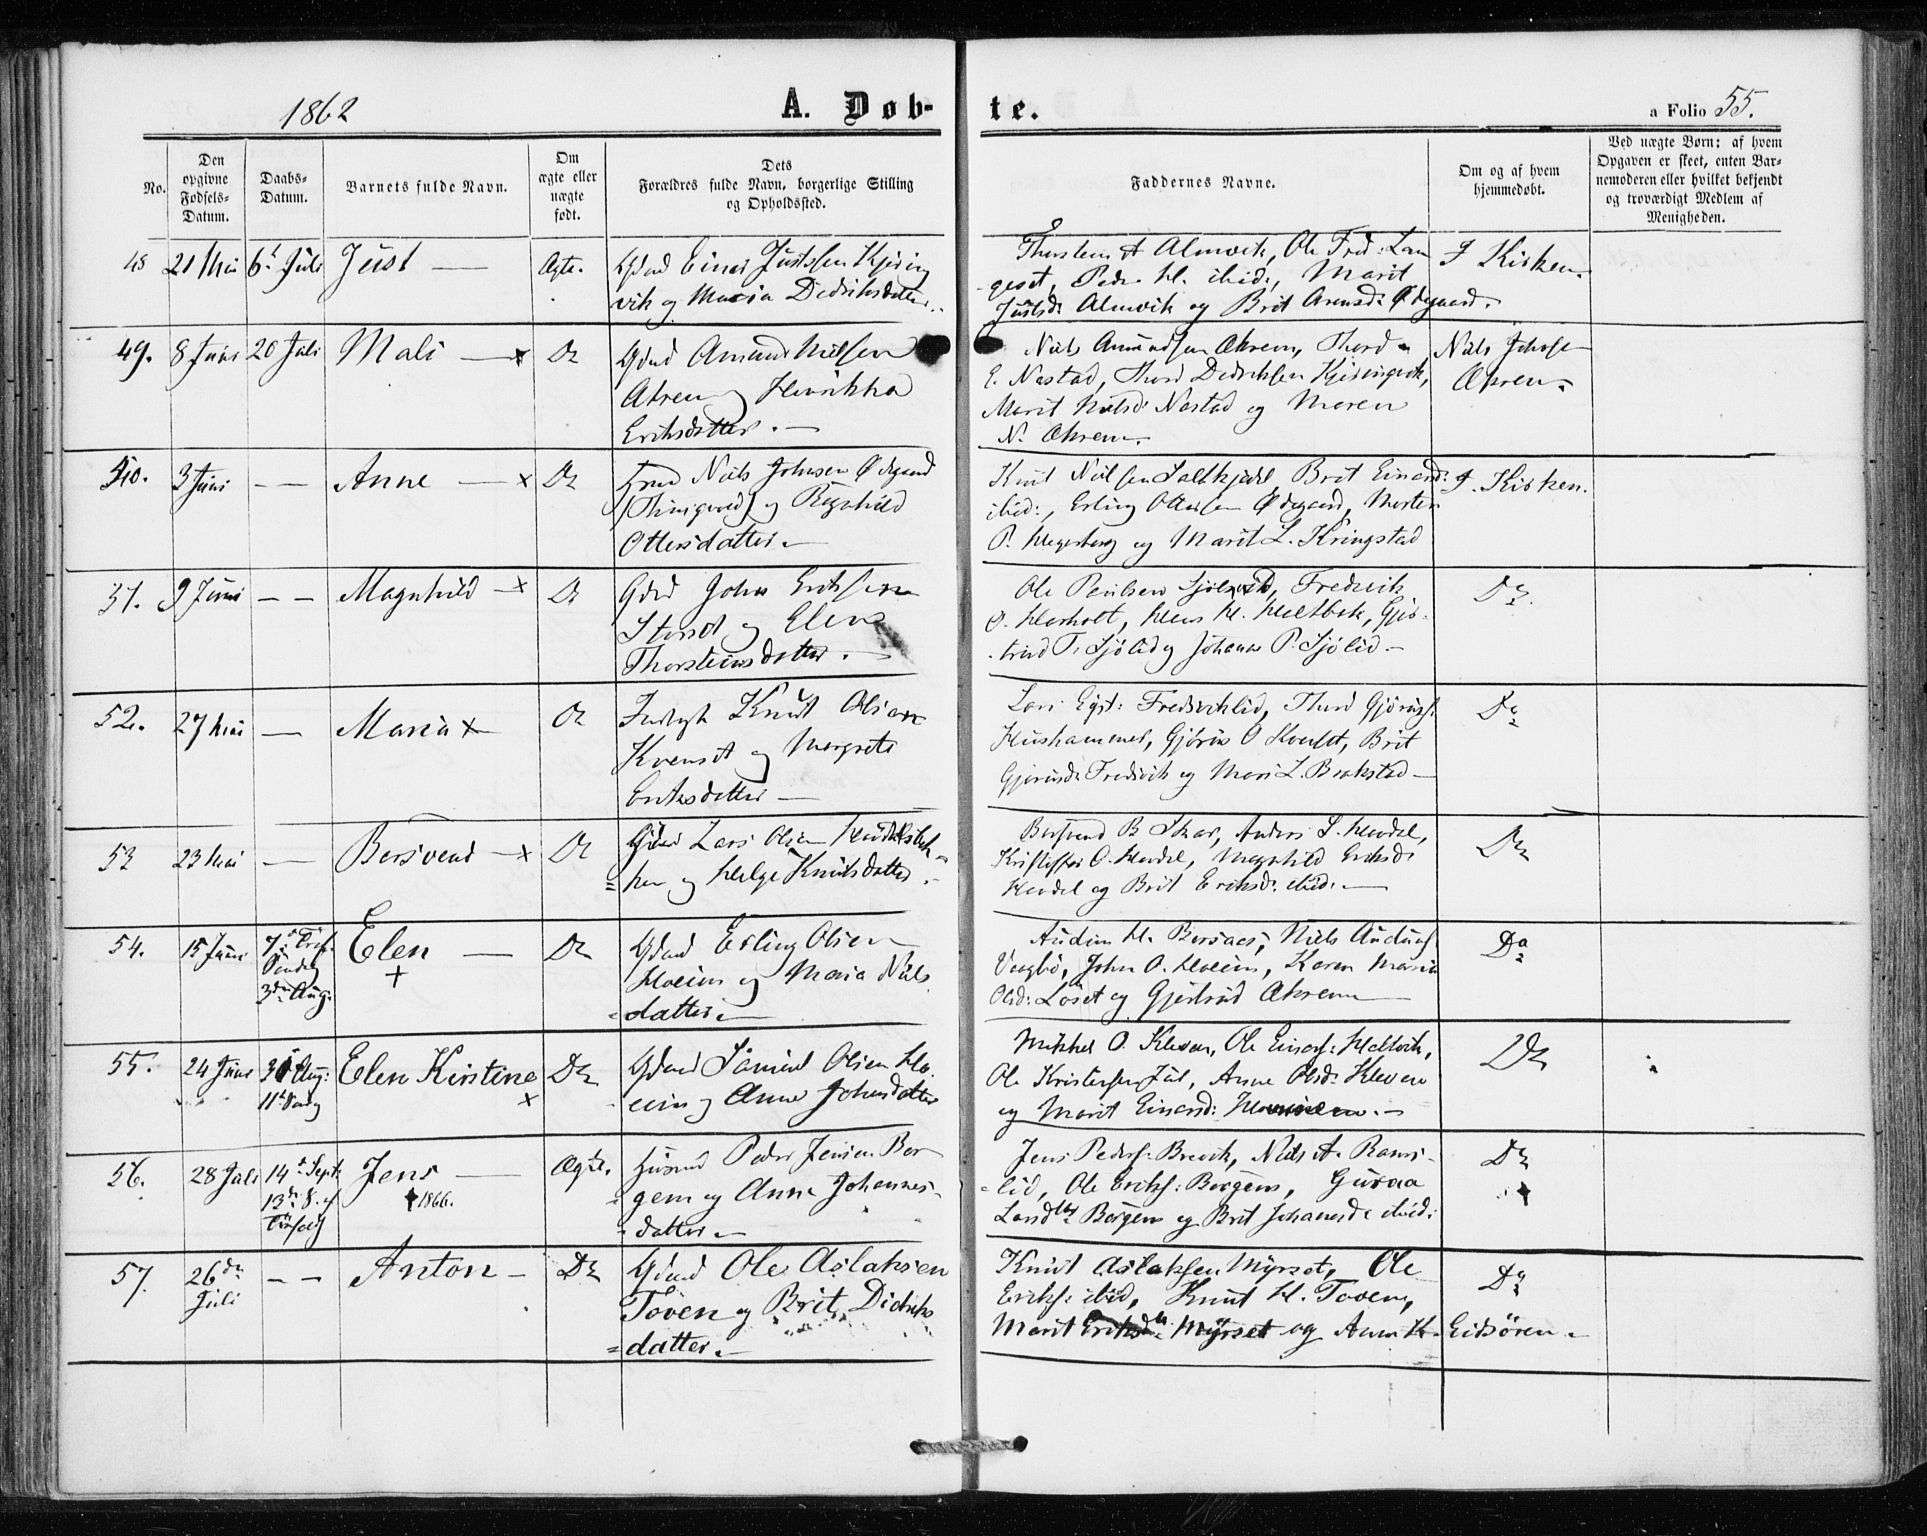 1862
A. Døb-
te.
a Folio 55.
No.
Den
opgivne
Fødsels-
Datum.
Daabs-
Datum.
Barnets fulde Navn.
Om
ægte eller
uægte
født.
Dets
Forældres fulde Navn, borgerlige Stilling
og Opholdssted.
Faddernes Navne.
Om og af hvem
hjemmedøbt.
Ved uægte Børn: af hvem
Opgaven er skeet, enten Bar-
nemoderen eller hvilket bekjendt
og troværdigt Medlem af
Menigheden.
48 21 Mai 6t Juli Just — Ægte. Gdmd Einar Justsen Kjøring
vik og Maria Didriksdatter.
Thorstein A Almvik, Ole Fred: Lan
geset, Peder H. ibid:, Marit
Justsd: Almvik og Brit Arensd: Ødegaard.
I Kirken.
49. 8 Juni 20 Juli Mali — x Do Gdmd Amund Nielsen
Akren og Henrikka
Eriksdatter. —
Niels Amundsen Ækrem, Thord
E. Nastad, Thord Didriksen Kjøringvik,
Marit Nielsd: Nastad og Maren
N. Ækrem.
Niels Johns
Ækren.
50. 3 Juni — — Anne — x Do Niels Johnsen Ødegaard
og Ragnhild
Ottersdatter.
Knut Nielsen Saltkjelel, Brit Einarsd:
ibid:, Erling Ottersen Ødegaard, Morten
P. Hegerberg og Marit L. Kringstad
I Kirken.
51. 9 Juni — — Magnhild — x Do Gdmd John Eriksen
Storset og Elen
Thorsteinsdatter. —
Ole Paulsen Sjølid, Fredrik
O. Horholt, Hans H. Meltbak, Gjer-
trud T. Sjølid og Johanna P. Sjølid —
Do.
52. 27 Mai — Maria x Do Knud Olsen
Kvenset og Margrete
Eriksdatter —
Lars Fredriklid, Thord Gjørings:
Hushammer, Gjørin O Kvenset, Brit
Gjørinsd: Fredvik og Mari L. Brakstad —
Do
53 23 Mai — Bersvend — x Do Gdmd Lars Olsen
og Helge Knutsdatter.
Bersvend B Skar, Anders S. Hendel,
Kristoffer O. Hendel, Magnhild Eriksd:
Hendel og Brit Eriksd: ibid: —
Do
54. 15 Juni 7de Tref.
Søndag
3die Aug. Elen —
+ Do Gdmd Erling Olsen
Hoeim og Maria Niels
datter. —
Audun H. Bersaas, Niels Auduns
Vaagbø, John O. Hoeim, Karen Maria
Olsd: Løset og Gjertrud Ækrem —
Do
55. 24 Juni 31 Aug:
11te Søndag Elen Kirstine
x Do Gdmd Simen Olsen Ho-
eim og Anne Johnsdatter
Mikkel O. Kleven, Ole Einars: Hallvik,
Ole Kristensen Jul, Anne Olsd: Kleven
og Marit Einarsd: —
Do
56. 28 Juli 14de Sept.
13de S. ef
Trefold Jens —
† 1866. Ægte. Husmd Peder Jensen Bor-
gen og Anne Johannes-
datter. —
Jens Peders: Brevik, Niels A. Rams-
lid, Ole Eriks: Borgens, Guraa
Larsdtr Borgen og Brit Johansd: ibid:
Do
57. 26de
Juli — — Anton — Do Gdmd Ole Aslaksen
Toven og Brit Didriks
datter. —
Knud Aslaksen Myrset, Ole
Eriks: ibid, Knut H. Toven,
Marit Eriksdtr Myrset og Anne K. Eidsøren.
Do